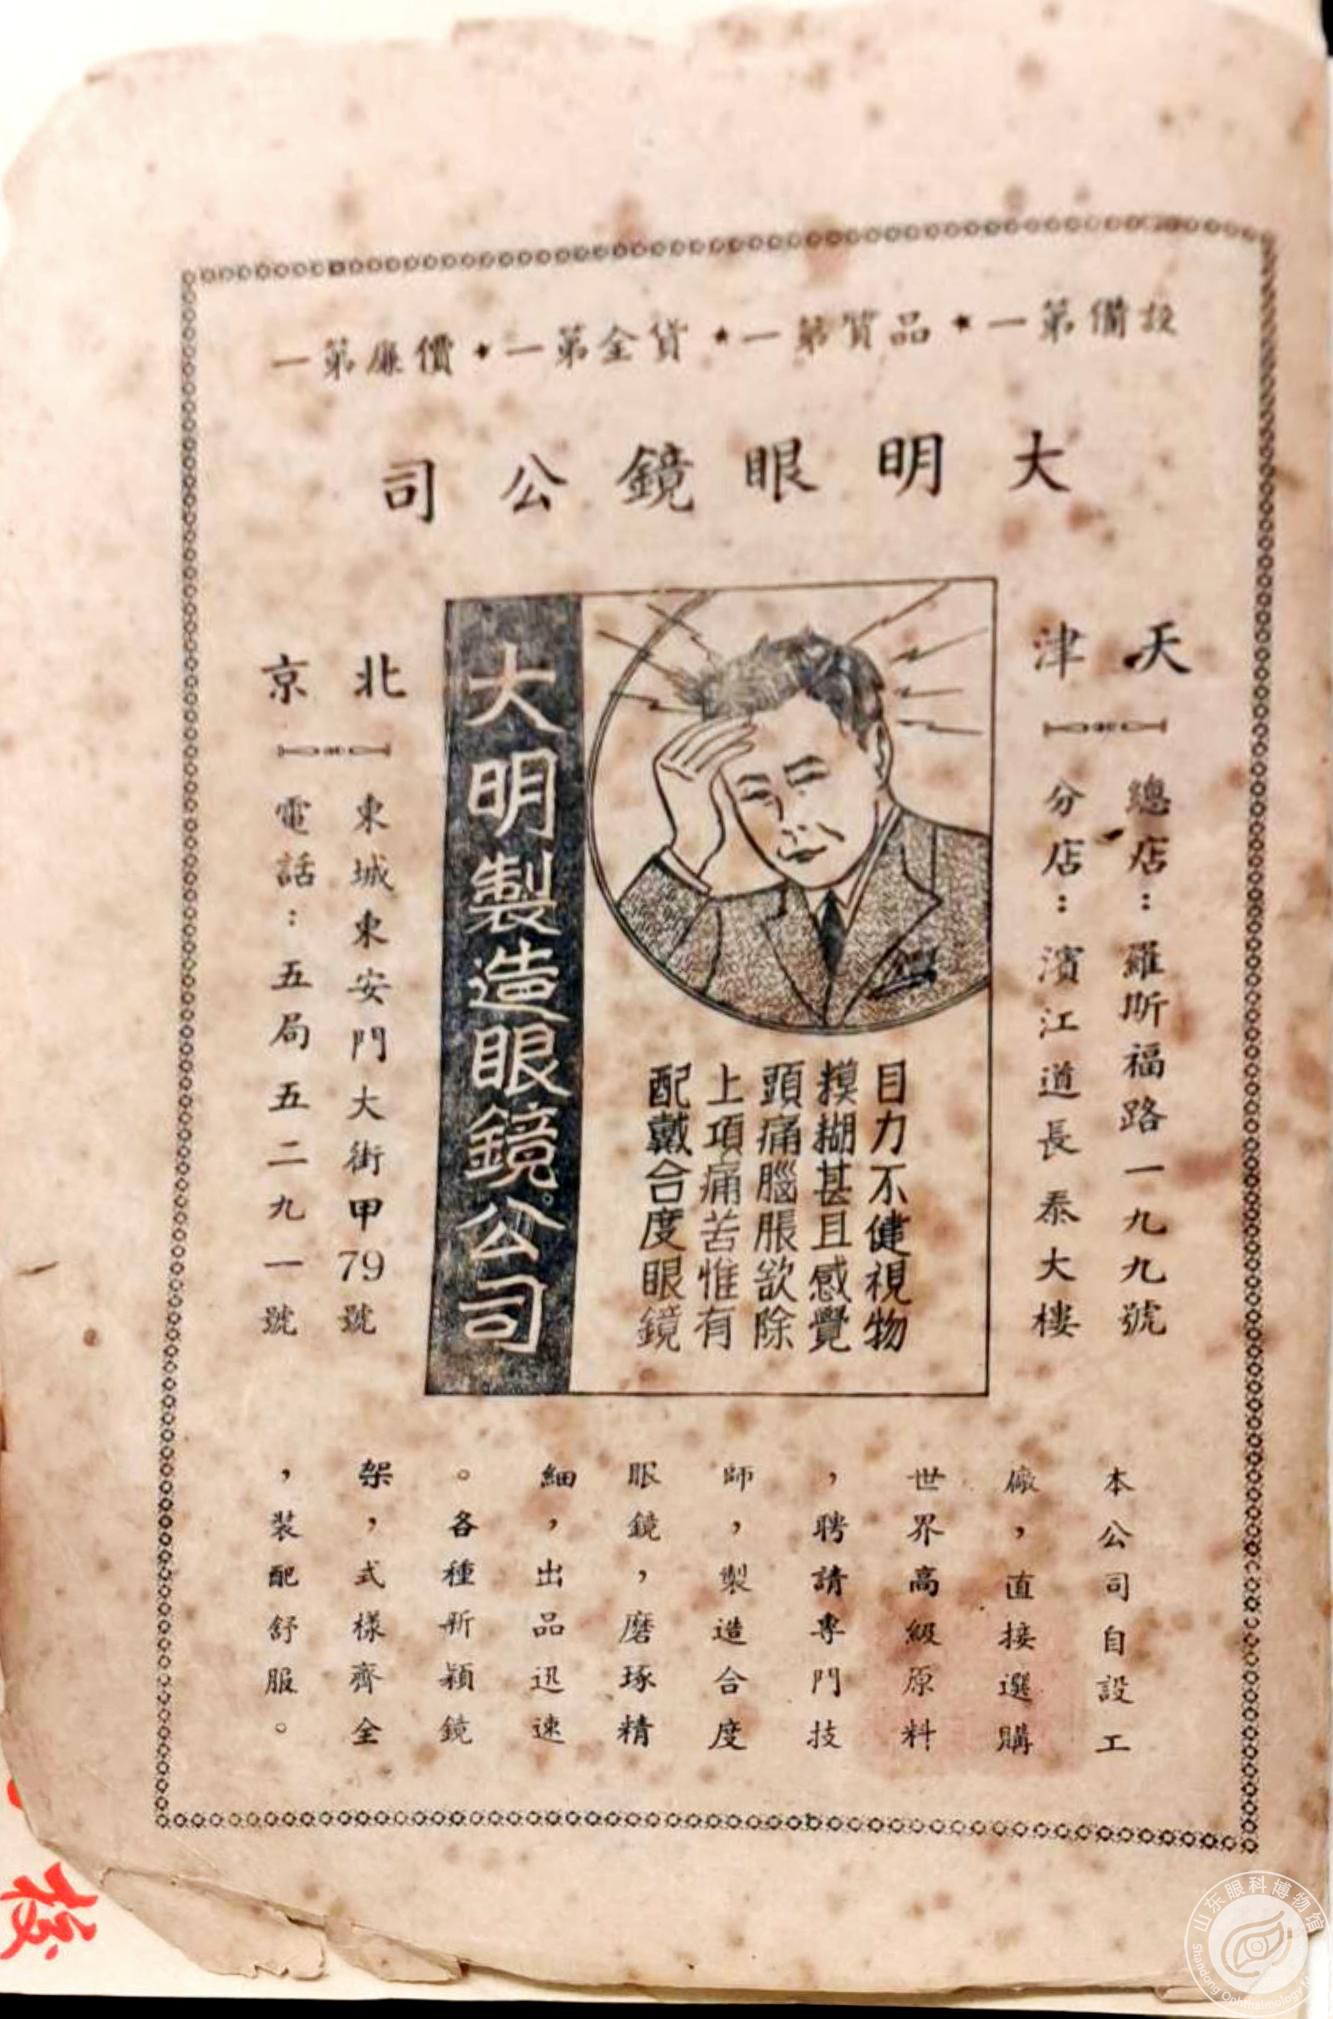 設備第一★品質第一★貨全第一★價廉第一
大明眼鏡公司
天津
總店：羅斯福路一九九號
分店：濱江道長泰大樓
目力不健視物
摸糊甚且感覺
頭痛腦脹欲除
上項痛苦惟有
配戴合度眼鏡
大明製造眼鏡公司
北京
東城東安門大街甲79號
電話：五局五二九一號
本公司自設工
廠，直接選購
世界高級原料
，聘請專門技
師，製造合度
眼鏡，磨琢精
細，出品迅速
。各種新穎鏡
架，式樣齊全
，裝配舒服。
山东眼科博物馆
Shandong Ophthalmology